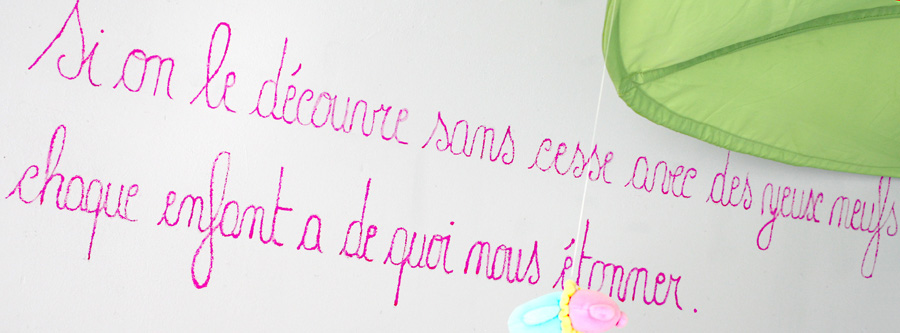 Si on le découvre sans cesse avec des yeux neufs
chaque enfant a de quoi nous étonner.